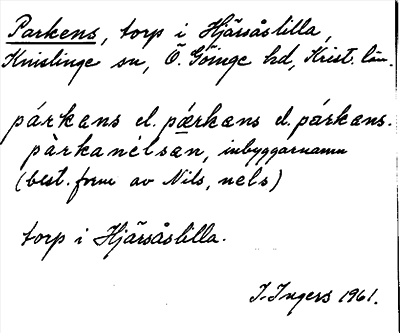 Parkens, torp i Hjärsåslilla,
Knislinge sn, Ö. Göinge hd, Krist. län.
párkans el. pærkæns el. párkans.
pàrkanélsan, inbyggarnamn
(best. form av Nils, nels)
torp i Hjärsåslilla.
I. Ingers 1961.